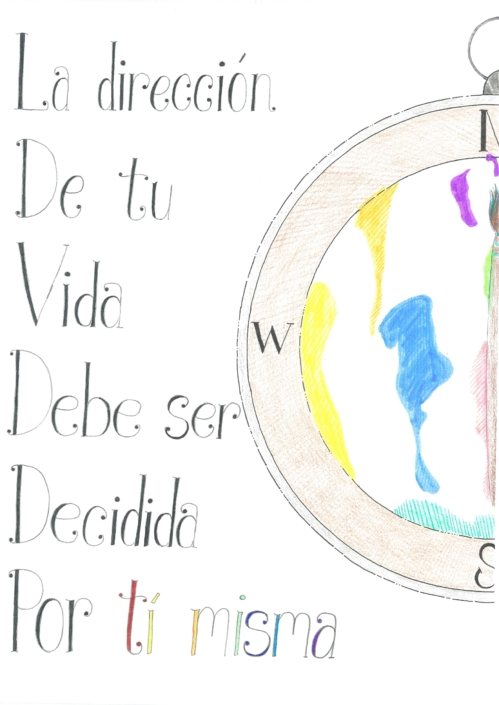 La dirección
De tu
Vida
Debe ser
Decidida
Por tí misma
N
W
S